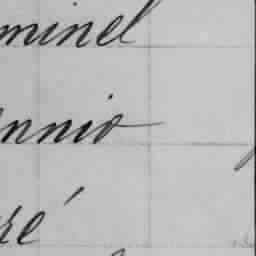 minel
nnio
ré